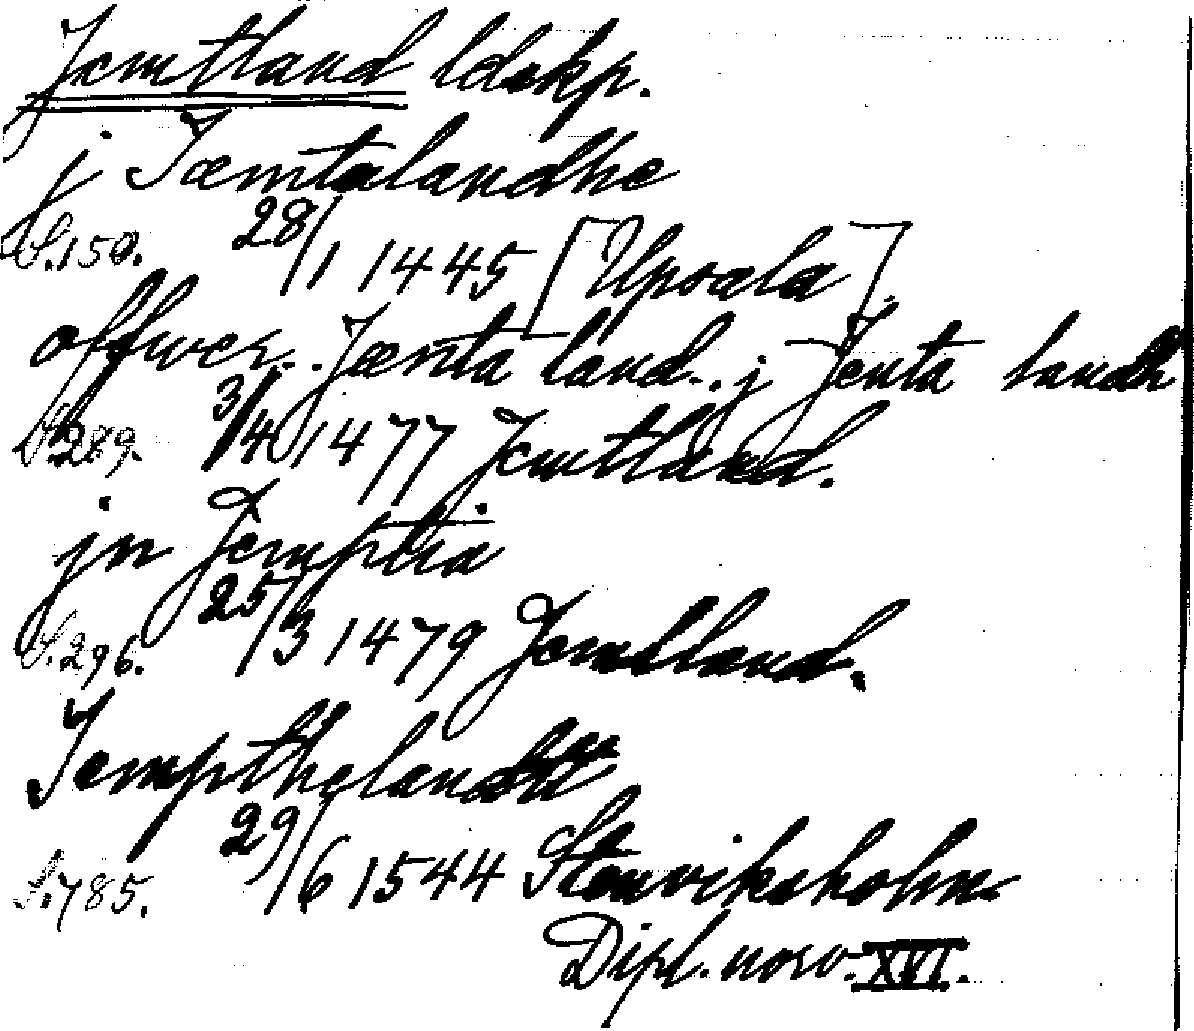 Jemtland ldskp.
j Jæmtalandhe
S.150. 28/1 1445 [Upsala].
offwer.. Jænta land.. j Jenta landh
S.289. 3/4 1477 Jemtland.
jn Jemptia
S.296. 25/3 1479 Jemtland.
Jempthelandtt
S.785. 29/6 1544 Stenviksholm.
Dipl. norv. XVI.